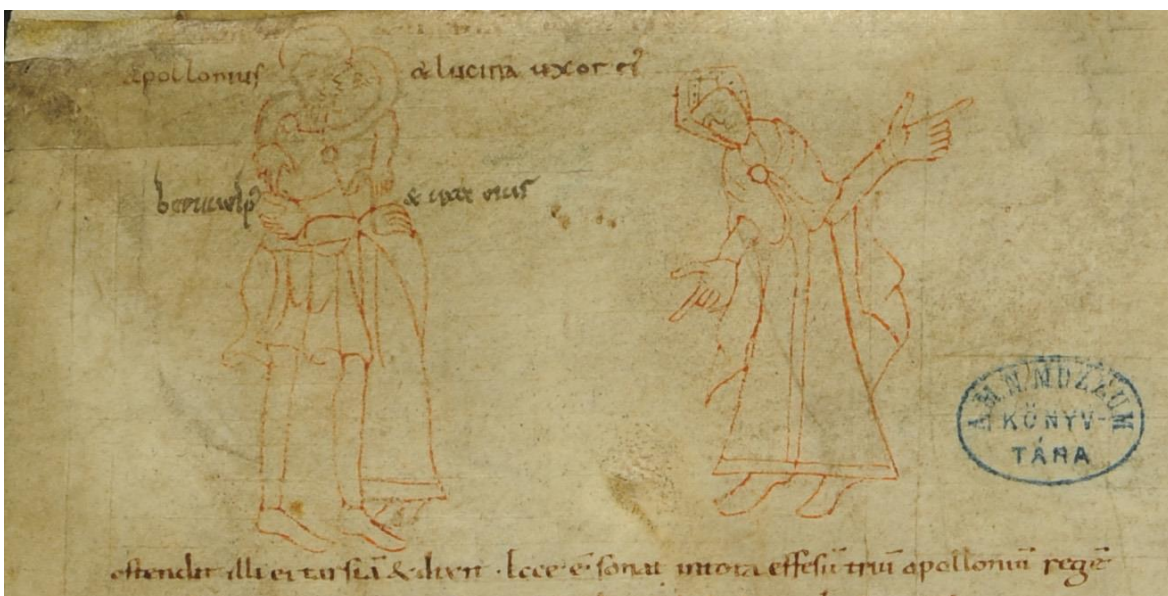 apollonius & lucina uxor ei᾽
& uxor eius
A. M. N. MUZEUM
KÖNYV-
TÁRA
ostendit illi et tarsiā & dixit · Ecce ē sonat in tota effesū apolloniū regē